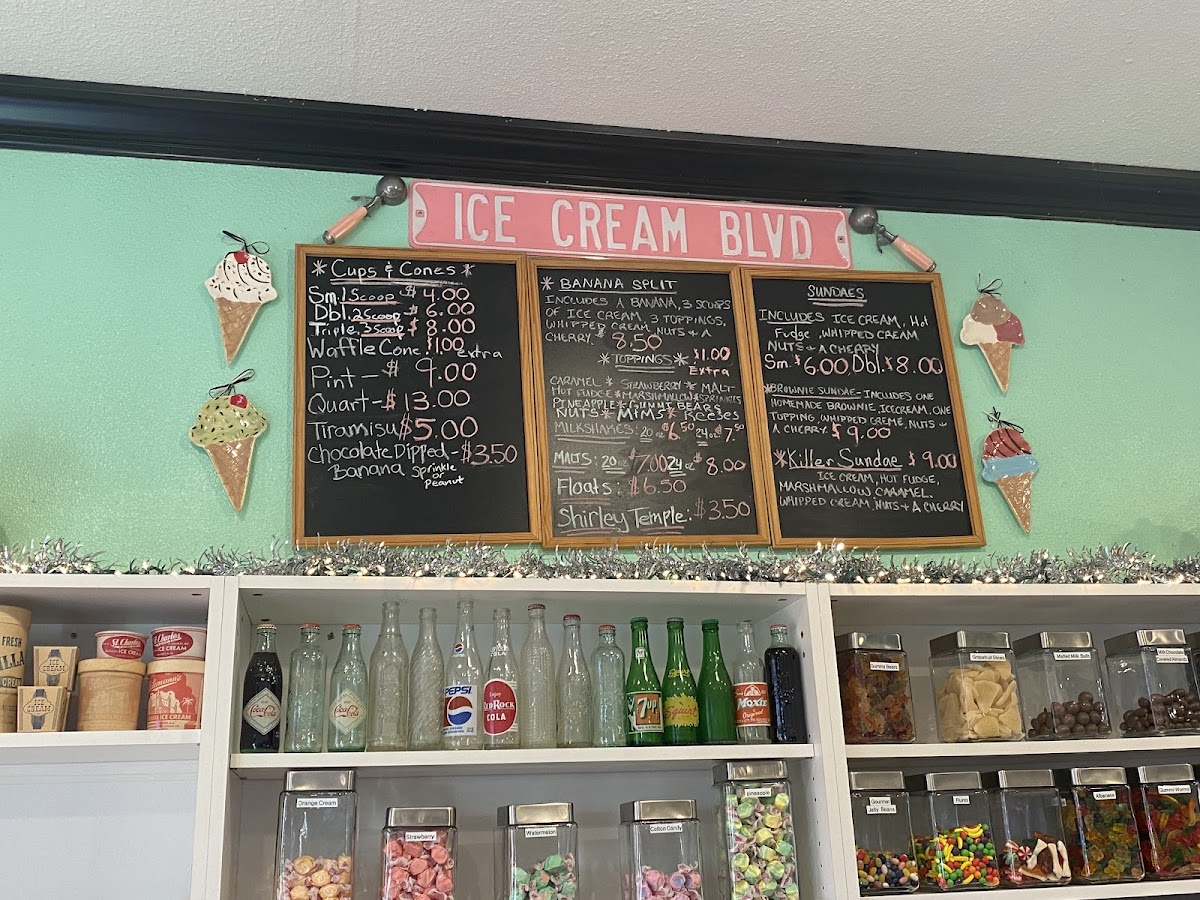 ICE CREAM BLVD
* Cups & Cones *
Sm. 1 Scoop $4.00
Dbl. 2 Scoop $6.00
Triple, 3 Scoop $8.00
Waffle Cone. $1.00 extra
Pint — $9.00
Quart — $13.00
Tiramisu $5.00
Chocolate Dipped — $3.50
Banana Sprinkle
or
Peanut
* BANANA SPLIT
INCLUDES A BANANA, 3 SCOOPS
OF ICE CREAM, 3 TOPPINGS,
WHIPPED CREAM, NUTS & A
CHERRY * 8.50
* TOPPINGS * $1.00
Extra
CARAMEL * STRAWBERRY * MALT
HOT FUDGE * MARSHMALLOW * SPRINKLES
PINEAPPLE * GUMMI BEARS
NUTS * M&MS * Reeses
MILKSHAKES: 20oz $6.50 24oz $7.50
MALTS: 20oz $7.00 24oz $8.00
Floats: $6.50
Shirley Temple: $3.50
SUNDAES
INCLUDES ICE CREAM, Hot
Fudge, WHIPPED CREAM
NUTS & A CHERRY
Sm. $6.00 Dbl. $8.00
*BROWNIE SUNDAE - INCLUDES ONE
HOMEMADE BROWNIE, ICECREAM, ONE
TOPPING, WHIPPED CREME, NUTS &
A CHERRY $9.00
*Killer Sundae $9.00
ICE CREAM, HOT FUDGE,
MARSHMALLOW CARAMEL.
WHIPPED CREAM, NUTS & A CHERRY
FRESH
ICE
CREAM
ICE
CREAM
St. Charles
ICE CREAM
St. Charles
ICE CREAM
Coca-Cola
Coca-Cola
PEPSI
PEPSI
Enjoy
RED ROCK
COLA
7up
Squirt
Moxie
Gummy Bears
Grapefruit Slices
Malted Milk Balls
Milk Chocolate
Covered Almonds
Orange Cream
Strawberry
Watermelon
Cotton Candy
pineapple
Gourmet
Jelly Beans
Runts
Albanese
Gummi Worms